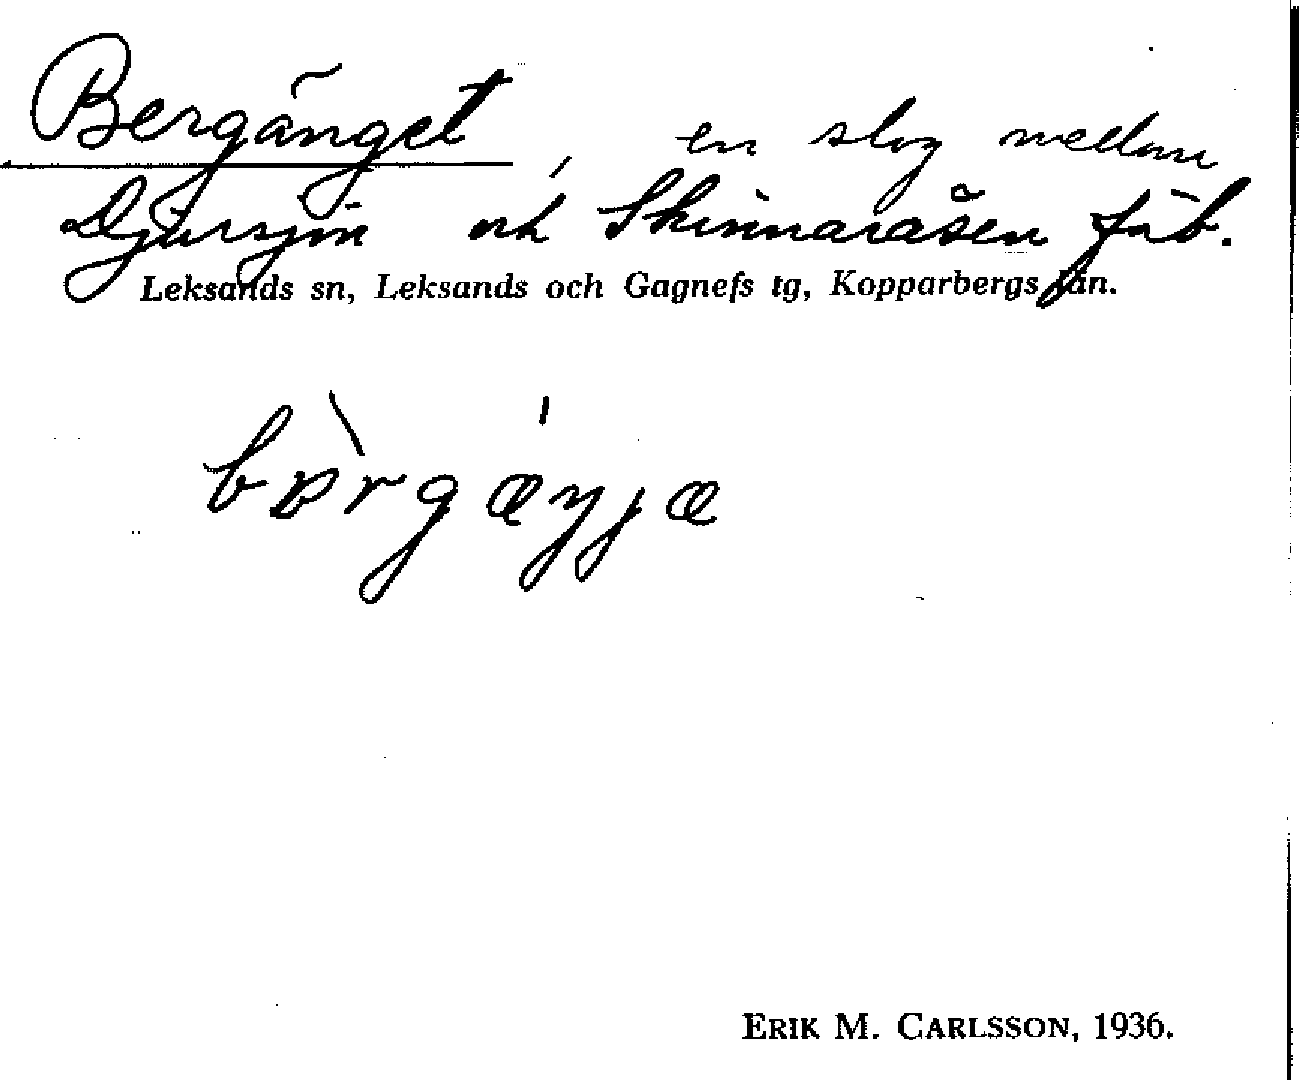 Bergänget, en slog mellan
Djursjön och Skinnaråsen fäb.
Leksands sn, Leksands och Gagnefs tg, Kopparbergs län.
ERIK M. CARLSSON, 1936.